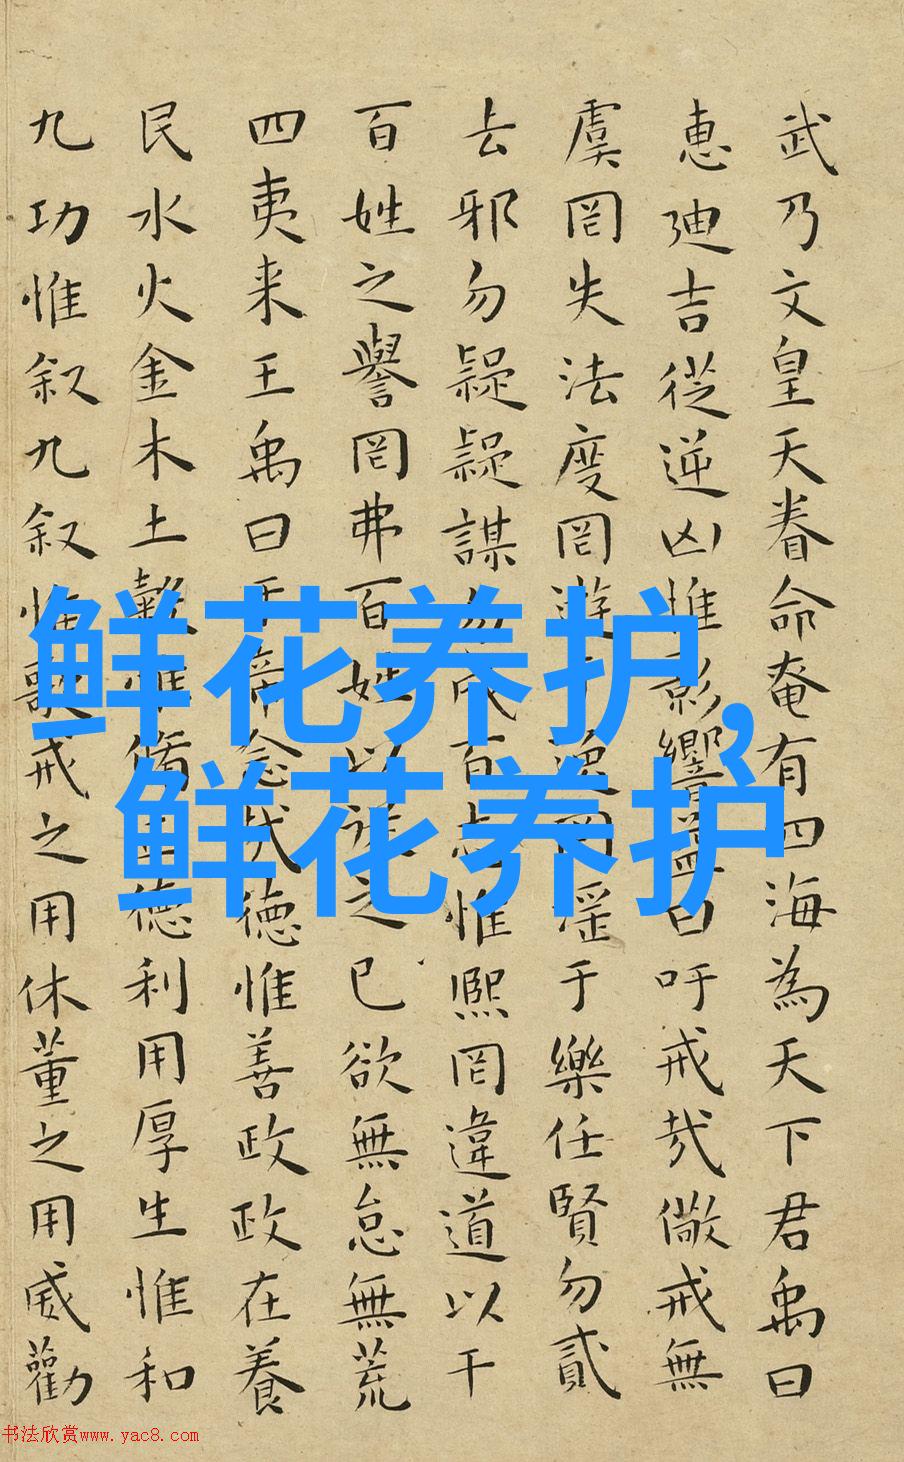 武乃文皇天眷命奄有四海為天下君禹曰
惠迪吉從逆凶惟影響益曰吁戒哉儆戒無
虞罔失法度罔遊于逸罔淫于樂任賢勿貳
去邪勿疑疑謀勿成百志惟熙罔違道以干
百姓之譽罔弗百姓以從之己欲無怠無荒
四夷来王禹曰於帝念哉德惟善政政在養
民水火金木土穀惟脩正德利用厚生惟和
九功惟叙九叙惟歌戒之用休董之用威勸
鲜花养护,
鲜花养护
书法欣赏www.yac8.com